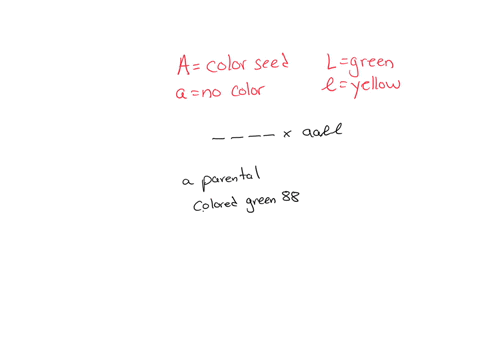 A = color seed L = green
a = no color l = yellow
_ _ _ _ x aall
a parental
colored green 88